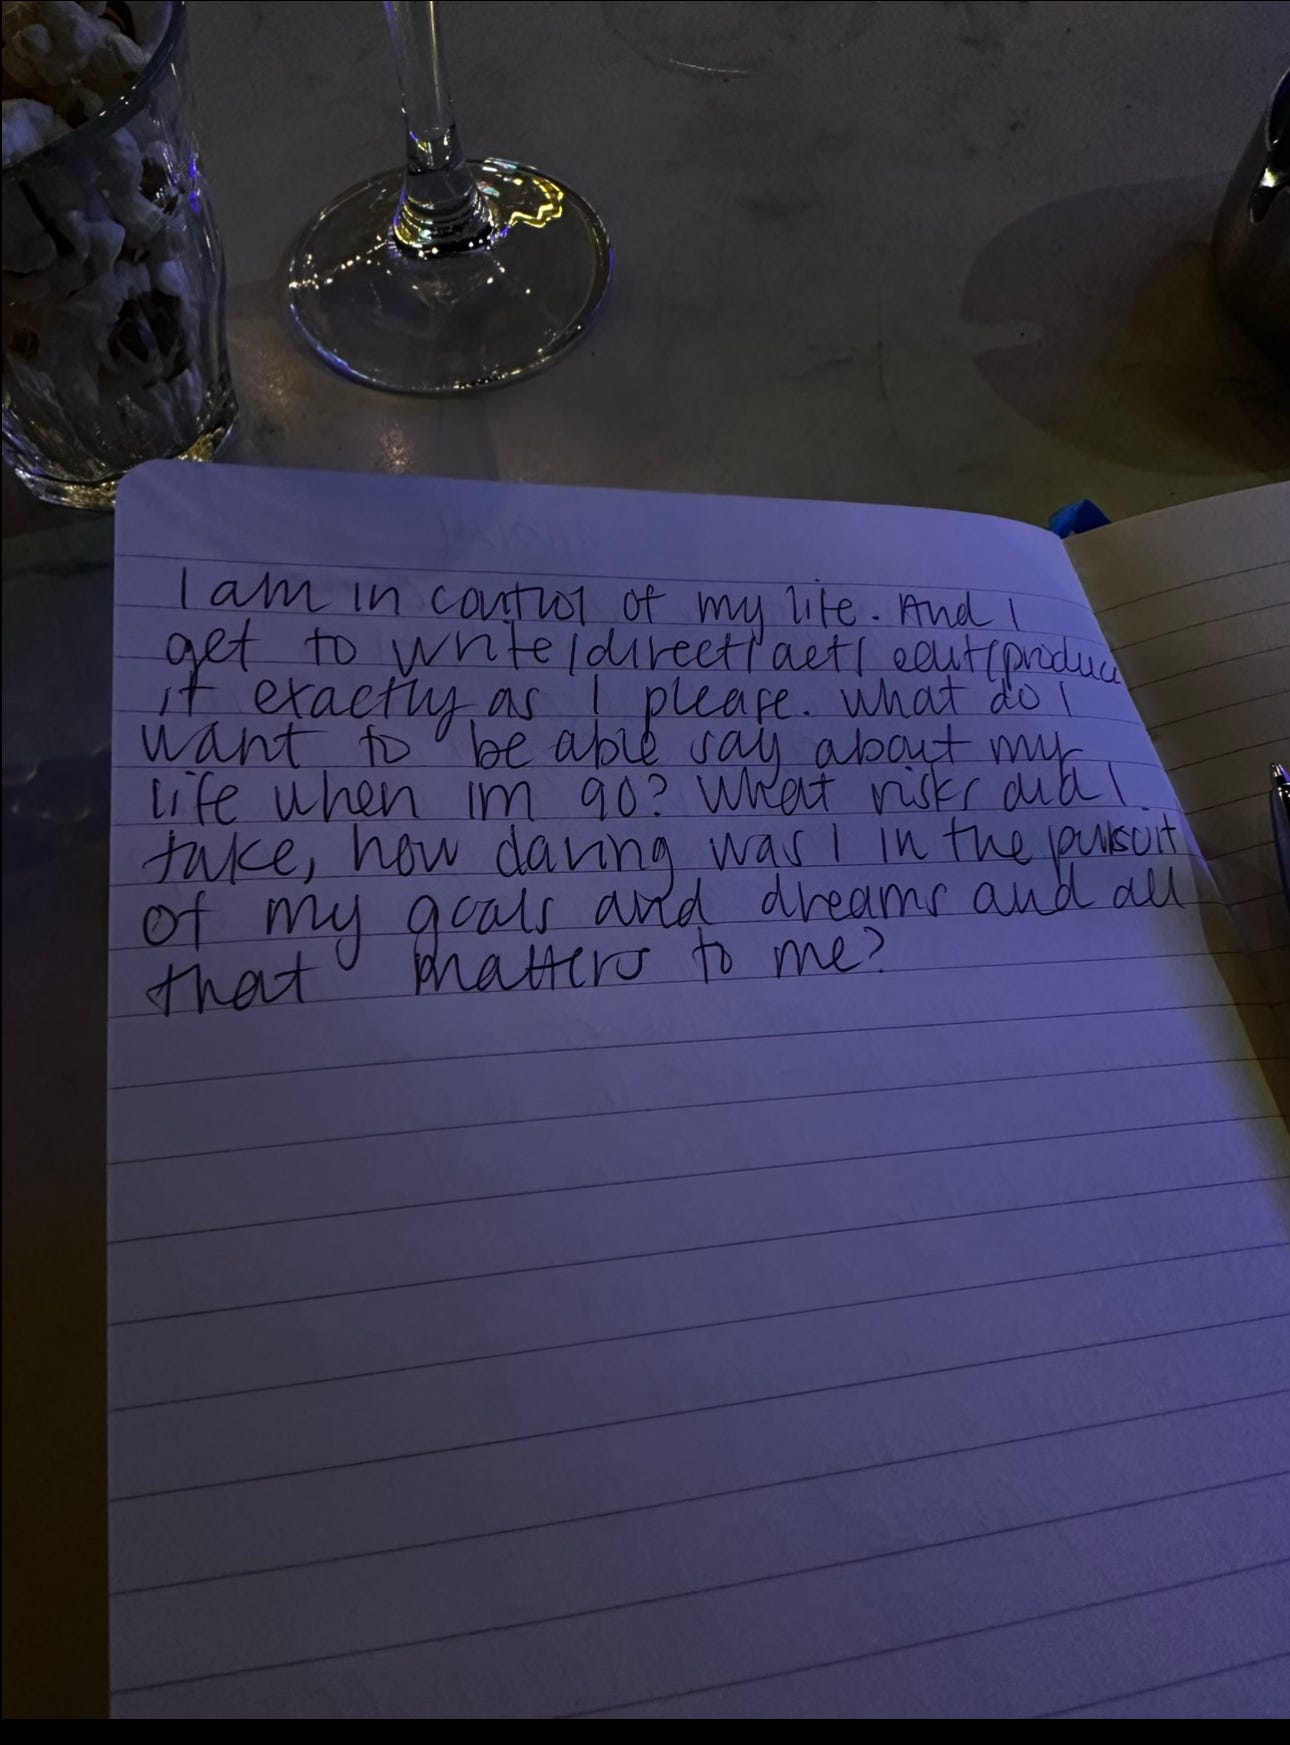 I am in control of my life. And I
get to write/direct/act/edit/produce
it exactly as I please. What do I
want to be able say about my
life when im 90? What risks did I
take, how daring was I in the pursuit
of my goals and dreams and all
that matters to me?